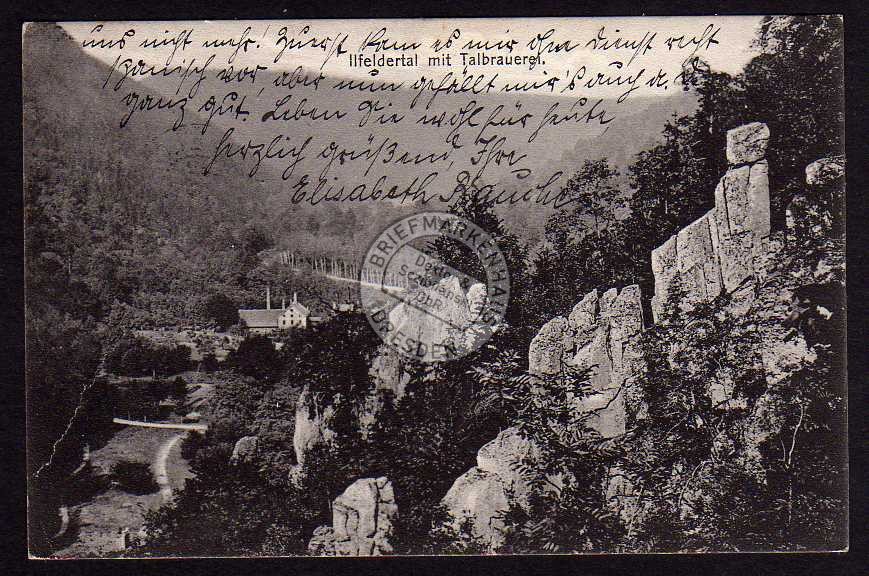 uns nicht mehr! Zuerst kam es mir ohn Dienst recht
Ilfeldertal mit Talbrauerei.
spanisch vor, aber nun gefällt mir's auch a. d.
ganz gut. Leben Sie wohl für heute,
herzlich grüßend, Ihre
Elisabeth Bauche
BRIEFMARKENHAUS
DRESDEN